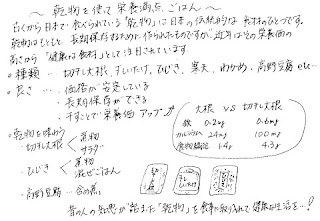 ～乾物を使って栄養満点ごはん～
古くから日本で食べられている「乾物」は日本の伝統的な食材のひとつです。
乾物はもともと長期保存するために作られたものですが、近年はその栄養価の
高さから「健康な食材」として注目されています
・種類…切干し大根、干しいたけ、ひじき、寒天、わかめ、高野豆腐 etc…
・良さ…価格が安定している
長期保存ができる
干すことで栄養価アップ
大根 VS 切干し大根
鉄 0.2mg 0.6mg
カルシウム 24mg 100mg
食物繊維 1.4g 4.3g
・乾物を味わう
-切干し大根 煮物
サラダ
-ひじき 煮物
混ぜごはん
-高野豆腐…含め煮
切干し大根
干し しいたけ
昔の人の知恵が詰まった"乾物"を食事に取り入れて健康な生活を…!